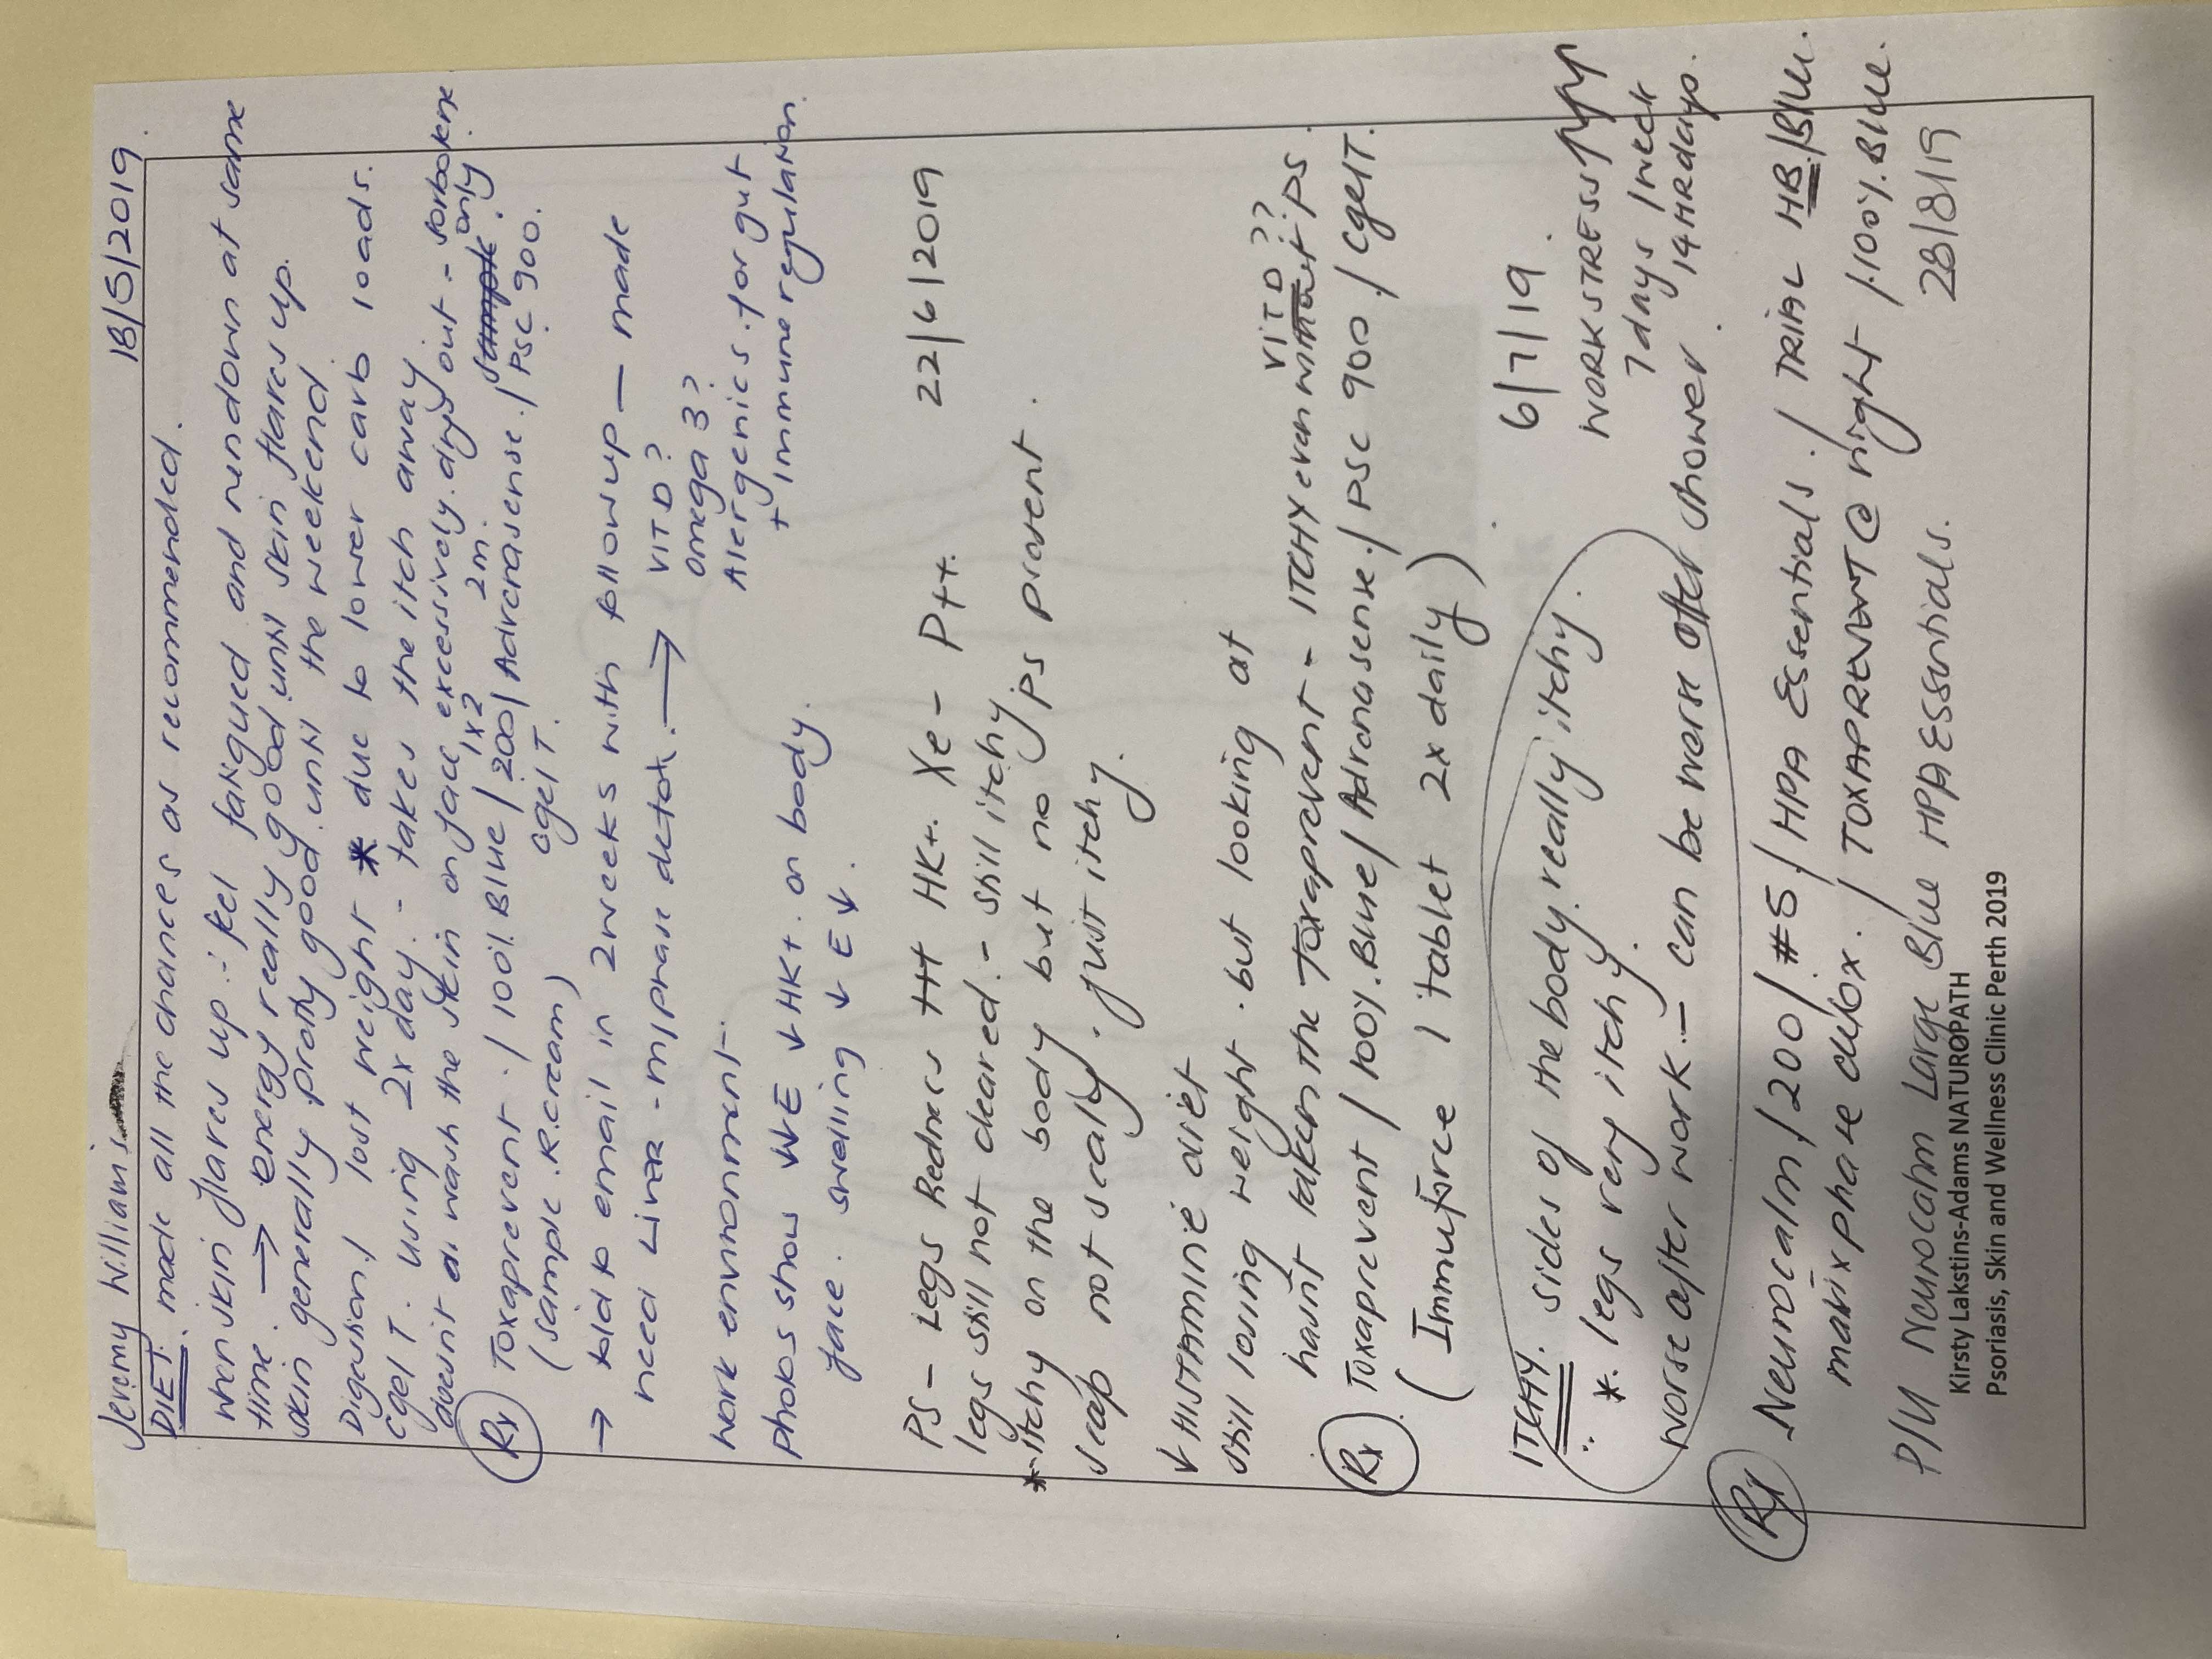 Jeremy Williams 18/5/2019.
DIET: made all the chances as recommended.
When skin flares up :- feel fatigued and rundown at same
time. → energy really good until skin flares up.
skin generally pretty good until the weekend
Digestion / lost weight * due to lower carb loads.
CgelT. Using 2x day. - takes the itch away
doesnt wash the skin on face excessively. drys out - sorbolene only
Rx Toxaprevent. / 100% Blue / 200 / Adrenasense. / PSC 900.
1x2 2m.
(sample R.cream) CgelT.
→ told to email in 2 weeks with followup — made
need Liver - m/phase detox. → VIT D?
omega 3?
Alergenics for gut
+ immune regulation.
work environment.
photos show ↓↓E ↓HK+. on body.
face. swelling ↓ E↓.
22/6/2019
PS - Legs Redness ++ HK+. Xe- P++.
legs still not cleared. - still itchy
*-itchy on the body but no ps present.
scalp not scaly. just itchy.
↓ HISTAMINE diet
still losing weight. but looking at VIT D??
hasnt taken the Toxaprevent - ITCHY even without PS.
Rx Toxaprevent / 100%.Blue / Adrenasense. / PSC 900 / CgelT.
(Immuforce 1 tablet 2x daily)
6/7/19.
ITCHY. sides of the body really itchy. WORK STRESS
* legs very itchy. 7 days / week
worse after work - can be worse after shower. 14HR days.
Rx Neurocalm / 200 / #5 / HPA Essentials. / TRIAL HB/Blue.
matrix phase detox. / TOXAPREVENT @ night / 100%.Blue.
P/U Neurocalm Large Blue HPA ESSentials. 28/8/19
Kirsty Lakstins-Adams NATUROPATH
Psoriasis, Skin and Wellness Clinic Perth 2019